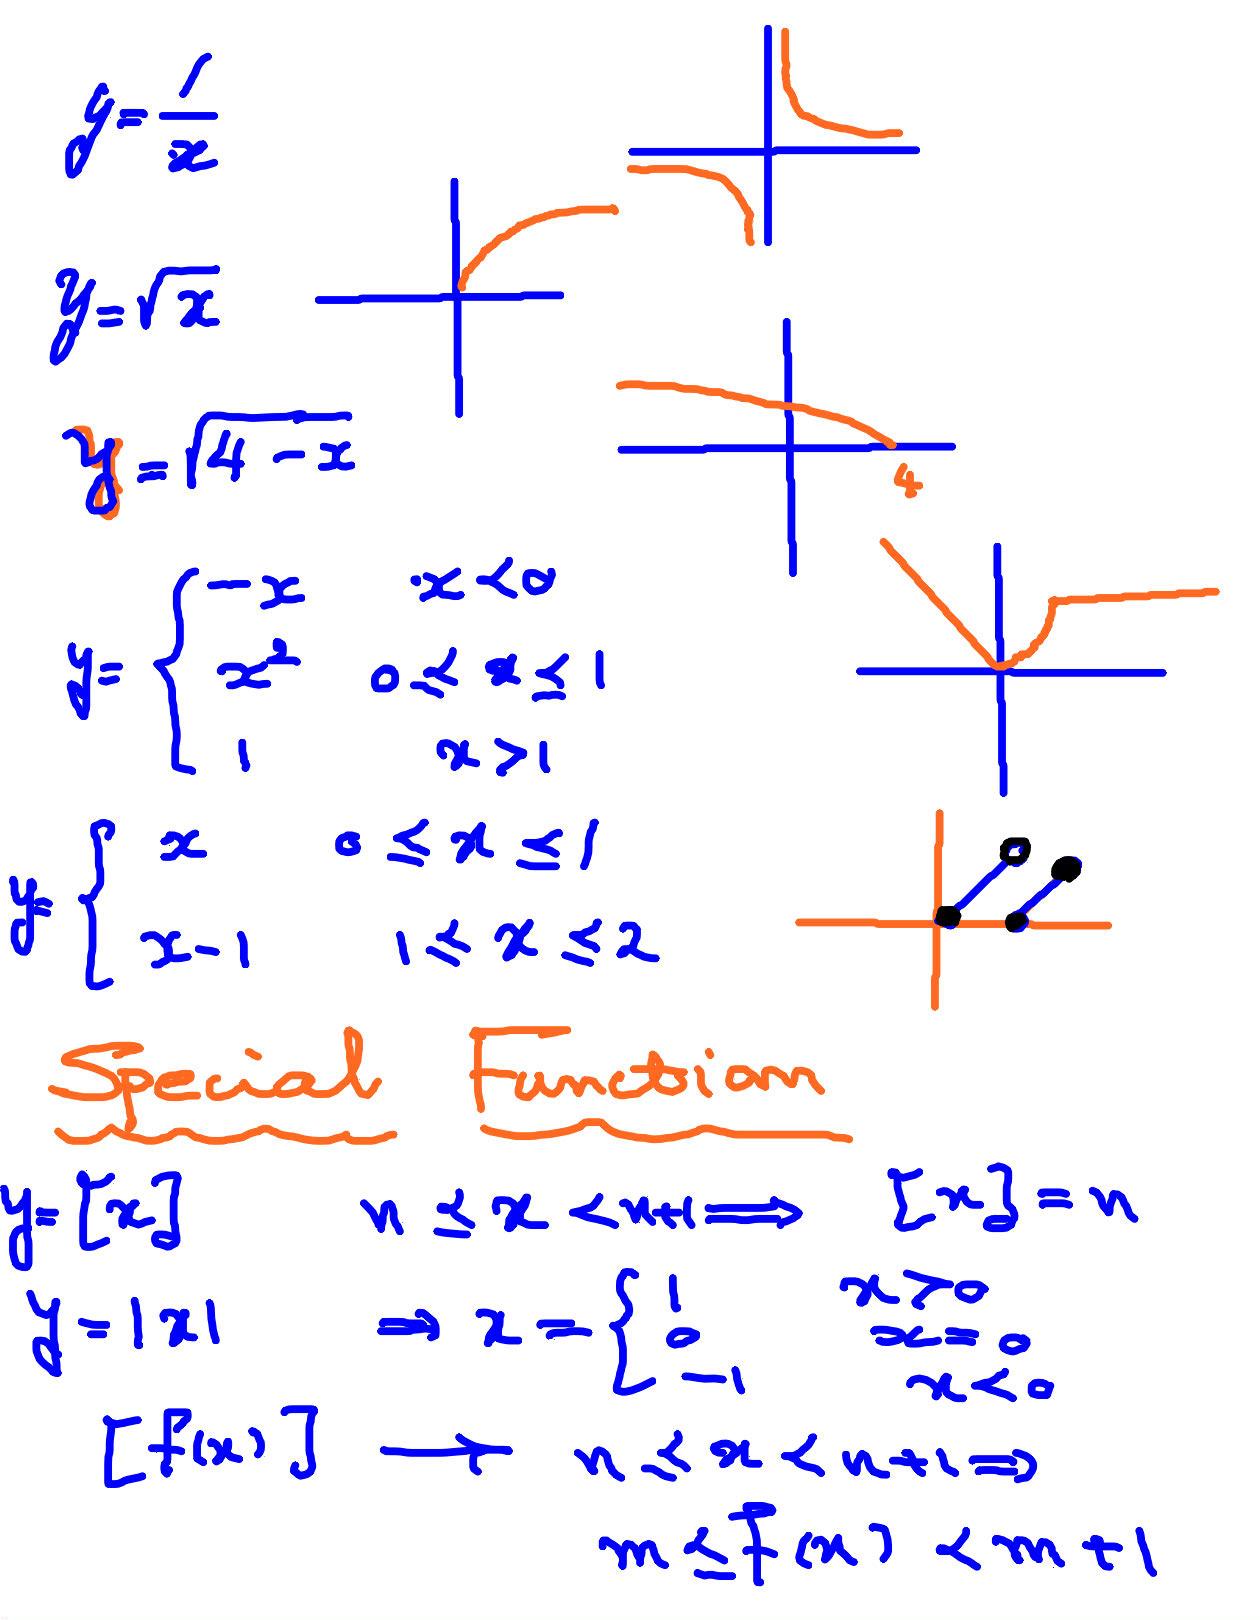 y = 1/x
y = √x
y = √(4 - x)
4
y = { -x x < 0
x² 0 ≤ x ≤ 1
1 x > 1
y = { x 0 ≤ x ≤ 1
x - 1 1 ≤ x ≤ 2
Special Function
y = [x] n ≤ x < n+1 ⟹ [x] = n
y = |x| ⟹ x = { 1 x > 0
0 x = 0
-1 x < 0
[f(x)] → n ≤ x < n+1 ⟹
m ≤ f(x) < m + 1